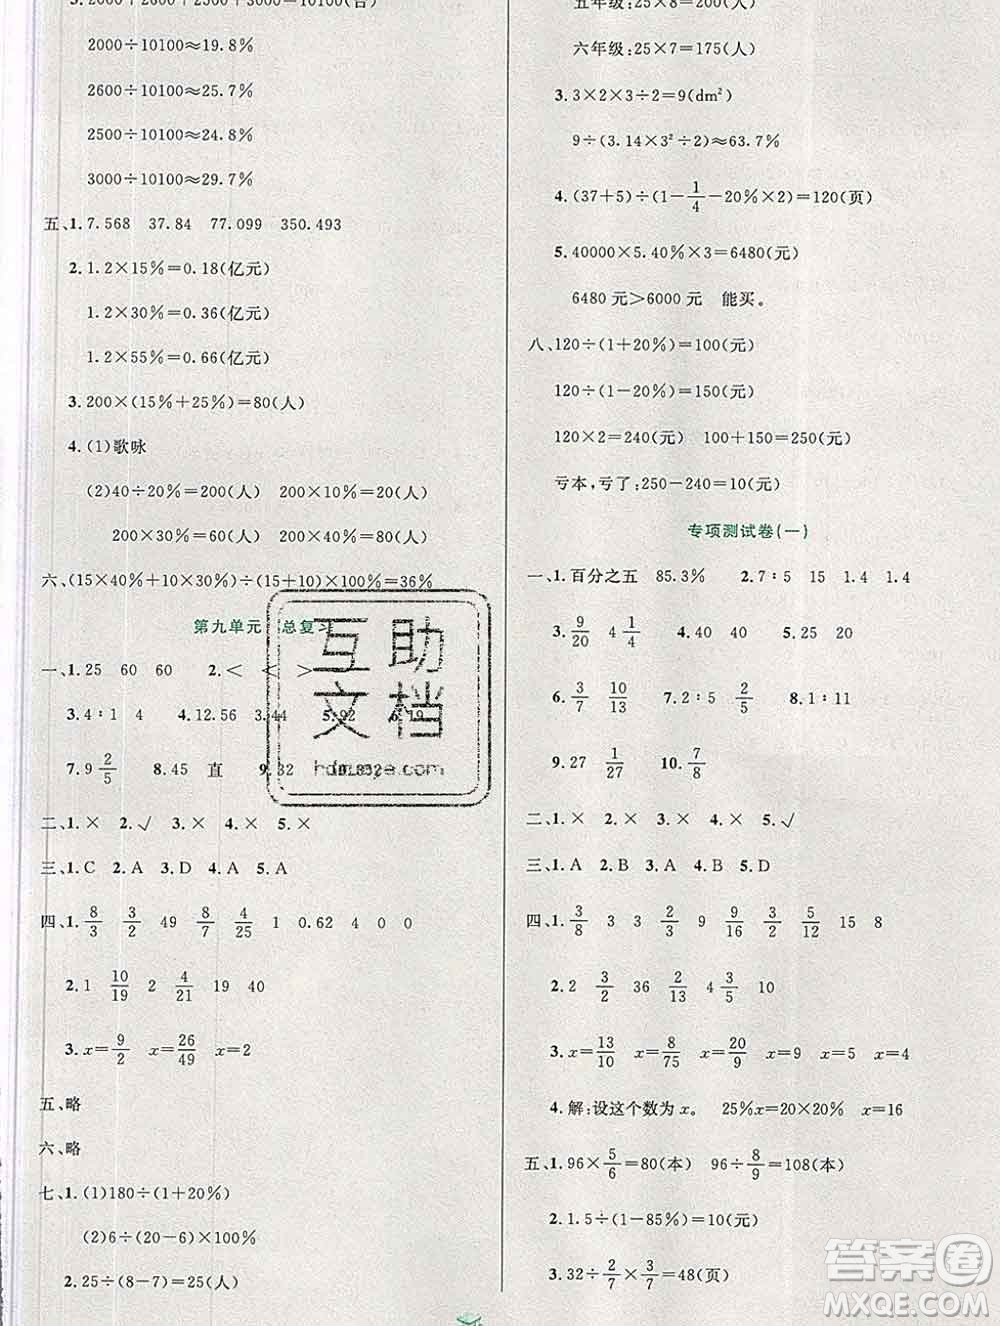 3.2000+2600+2500+3000=10100(台)
2000÷10100≈19.8%
2600÷10100≈25.7%
2500÷10100≈24.8%
3000÷10100≈29.7%
五、1.7.568 37.84 77.099 350.493
2.1.2×15%=0.18(亿元)
1.2×30%=0.36(亿元)
1.2×55%=0.66(亿元)
3.200×(15%+25%)=80(人)
4.(1)歌咏
(2)40÷20%=200(人) 200×10%=20(人)
200×30%=60(人) 200×40%=80(人)
六、(15×40%+10×30%)÷(15+10)×100%=36%
第九单元 总复习
一、1.25 60 60 2.< < >
3.4∶1 4 4.12.56 3.44 5.92 6.19
7.9 2/5 8.45 直 9.32
二、1.× 2.√ 3.× 4.× 5.×
三、1.C 2.A 3.D 4.A 5.A
四、1.8/3 3/2 49 8/7 4/25 1 0.62 4 0 0
2.1 10/19 2 4/21 19 40
3.x=9/2 x=26/49 x=2
五、略
六、略
七、1.(1)180÷(1+20%)
(2)6÷(20-6)×100%
2.25÷(8-7)=25(人)
五年级:25×8=200(人)
六年级:25×7=175(人)
3.3×2×3÷2=9(dm²)
9÷(3.14×3²÷2)≈63.7%
4.(37+5)÷(1-1/4-20%×2)=120(页)
5.40000×5.4%×3=6480(元)
6480元>6000元 能买。
八、120÷(1+20%)=100(元)
120÷(1-20%)=150(元)
120×2=240(元) 100+150=250(元)
亏本,亏了:250-240=10(元)
专项测试卷(一)
一、1.百分之五 85.3% 2.7∶5 15 1.4 1.4
3.9/20 4 1/4 4.40 20 5.25 20
6.3/7 10/13 7.2∶5 2/5 8.1∶11
9.27 1/27 10.7/8
二、1.× 2.× 3.× 4.× 5.√
三、1.A 2.B 3.A 4.B 5.D
四、1.3/8 3 3 2/3 9 9/16 3/2 5/12 15 8
2.2 3/2 36 2/13 4 3/5 10
3.x=13/10 x=8/75 x=20/9 x=9 x=5 x=4
4.解:设这个数为x。 25%x=20×20% x=16
五、1.96×5/6=80(本) 96÷8/9=108(本)
2.1.5÷(1-85%)=10(元)
3.32÷2/7×3/7=48(页)
互助
文档
答案圈
MXQE.COM